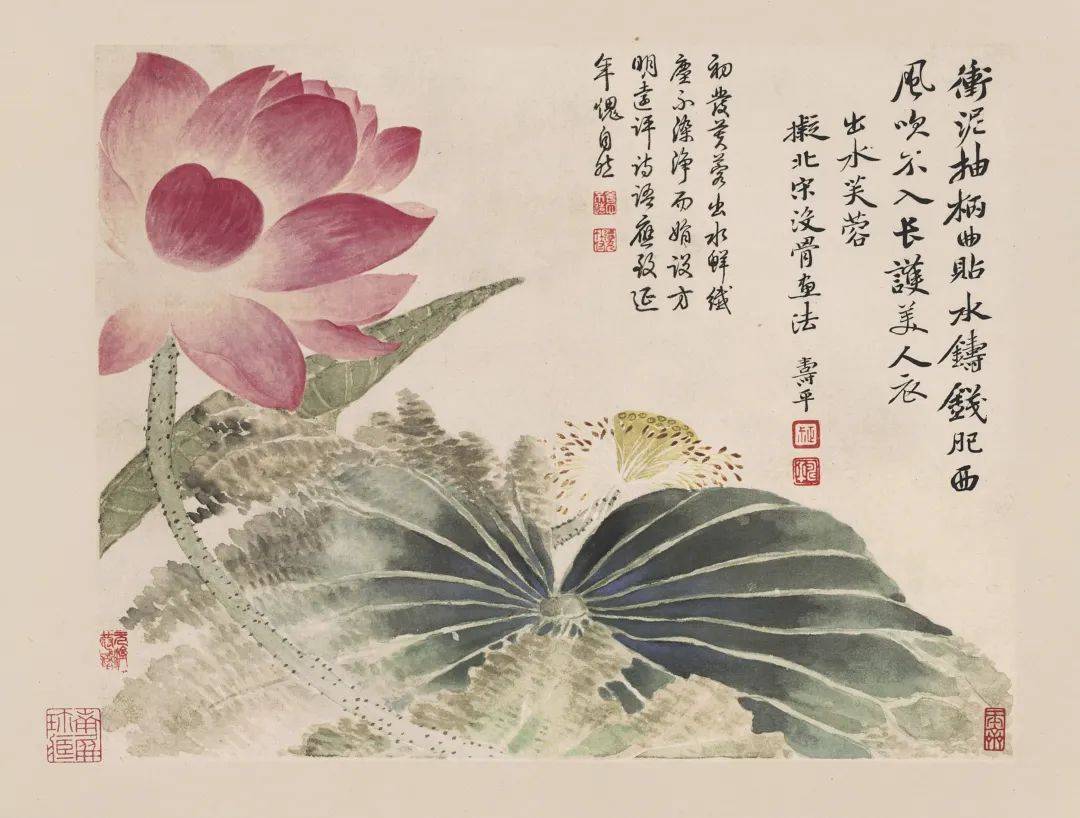 衝泥抽柄曲貼水鑄錢肥西
風吹不入長護美人衣
出水芙蓉
擬北宋没骨画法 壽平
初發芙蓉出水鮮纖
塵不染淨而娟設方
明遠評詩語應致延
年愧自然